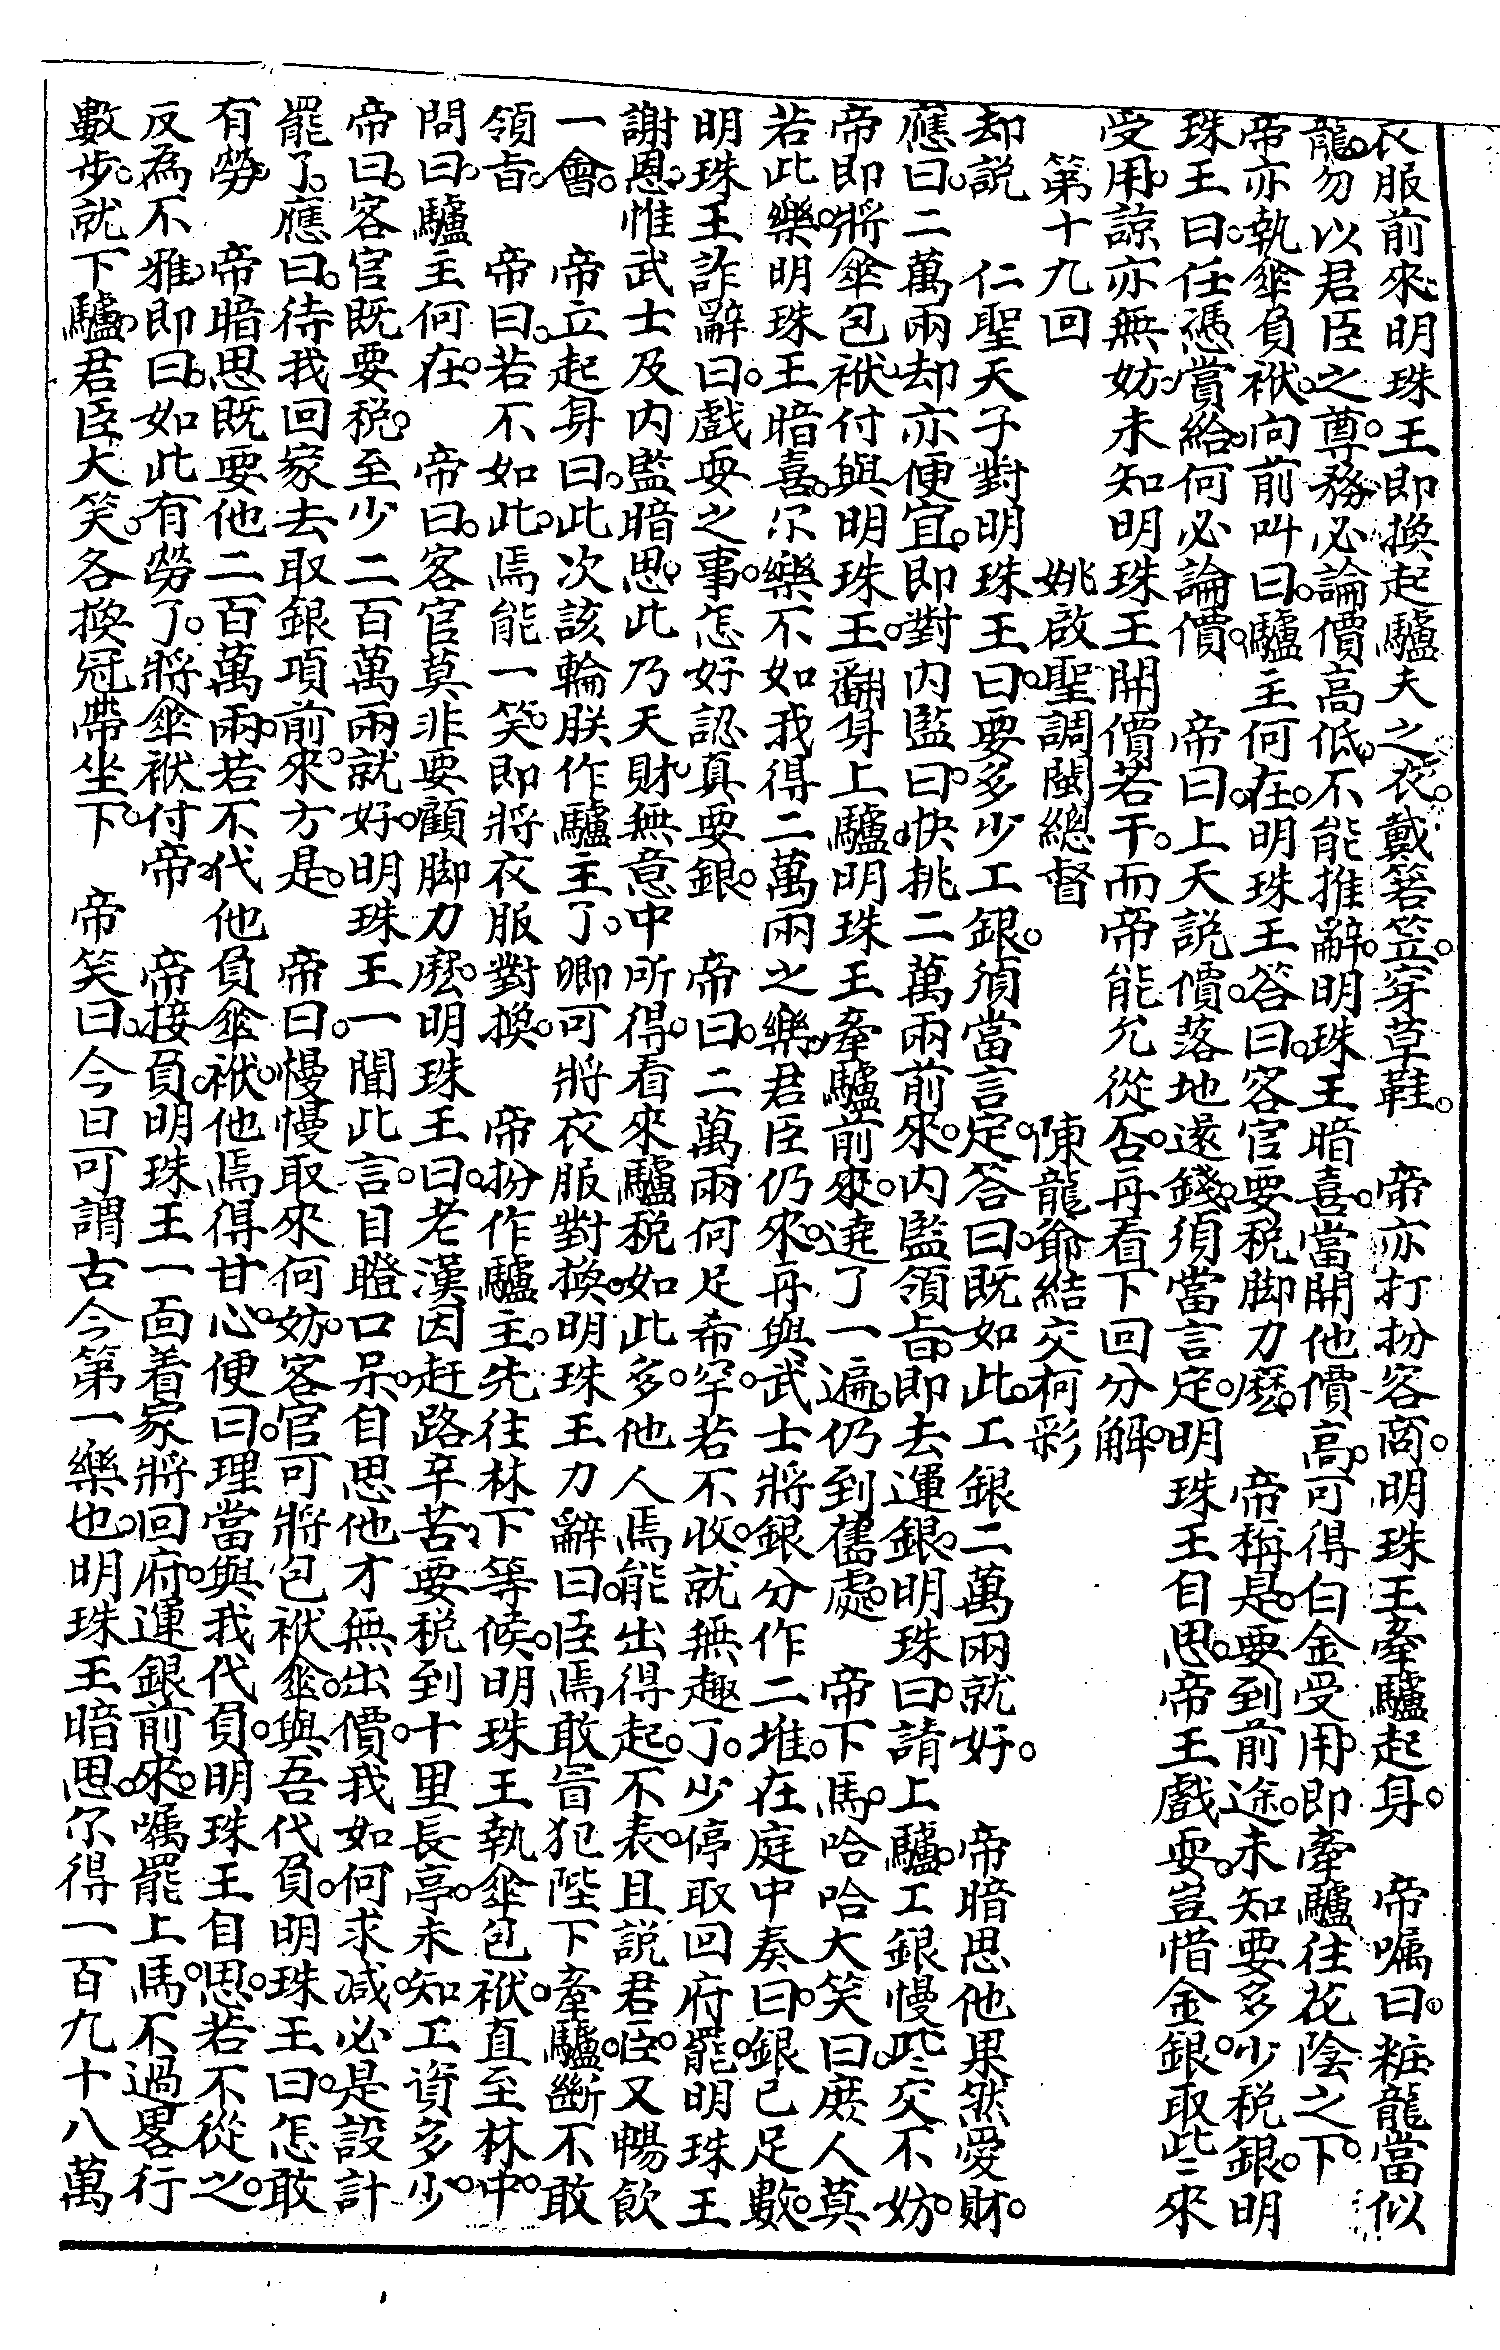 衣服前來明珠王即換起驢夫之衣。戴箬笠。穿草鞋。　帝亦打扮客商。明珠王牽驢起身。　帝囑曰。粧龍當似
龍。勿以君臣之尊。務必論價高低。不能推辭。明珠王暗喜。當開他價高。可得白金受用。即牽驢往花陰之下。
帝亦執傘負袱。向前叫曰。驢主何在。明珠王答曰。客官要税脚力麽。　帝稱是。要到前途。未知要多少税銀。明
珠王曰。任憑賞給。何必論價。　帝曰。上天説價。落地還錢。須當言定。明珠王自思。帝王戲耍。豈惜金銀。取些々來
受用。諒亦無妨。未知明珠王開價若干。而帝能允從否。再看下回分解。
第十九回　姚啟聖調閩總督　陳龍爺結交柯彩
却説　仁聖天子對明珠王曰。要多少工銀。須當言定。答曰。既如此。工銀二萬兩就好。　帝暗思他果然愛財。
應曰。二萬兩却亦便宜。即對内監曰。快挑二萬兩前來。内監領旨。即去運銀。明珠曰。請上驢。工銀慢些々交不妨。
帝即將傘包袱付與明珠王。翻身上驢。明珠王牽驢前來。遶了一遍。仍到舊處。　帝下馬。哈哈大笑曰。庶人莫
若此樂。明珠王暗喜。尔樂不如我得二萬兩之樂。君臣仍來。再與武士將銀分作二堆。在庭中奏曰。銀已足數。
明珠王詐辭曰。戲耍之事。怎好認真要銀。　帝曰。二萬兩何足希罕。若不收。就無趣了。少停取回府罷。明珠王
謝恩。惟武士及内監暗思。此乃天財。無意中所得。看來驢税如此多。他人焉能出得起。不表。且説君臣又暢飲
一會。　帝立起身曰。此次該輪朕作驢主了。卿可將衣服對換。明珠王力辭曰。臣焉敢冒犯陛下牽驢。斷不敢
領旨。　帝曰。若不如此。焉能一笑。即將衣服對換。　帝扮作驢主。先往林下等候。明珠王執傘包袱。直至林中。
問曰。驢主何在。　帝曰。客官莫非要顧脚力麽。明珠王曰。老漢因赶路辛苦。要税到十里長亭。未知工資多少。
帝曰。客官既要税。至少二百萬兩就好。明珠王一聞此言。目瞪口呆。自思他才無出價。我如何求减。必是設計
罷了。應曰。待我回家去取銀項前來方是。　帝曰。慢慢取來何妨。客官可將包袱傘。與吾代負。明珠王曰。怎敢
有勞。　帝暗思既要他二百萬兩。若不代他負傘袱。他焉得甘心。便曰。理當與我代負。明珠王自思。若不從之。
反為不雅。即曰。如此有勞了。將傘袱付帝。　帝接負。明珠王一面着家將回府。運銀前來。囑罷上馬。不過畧行
數步。就下驢。君臣大笑。各換冠帶坐下。　帝笑曰。今日可謂古今第一樂也。明珠王暗思。尔得一百九十八萬